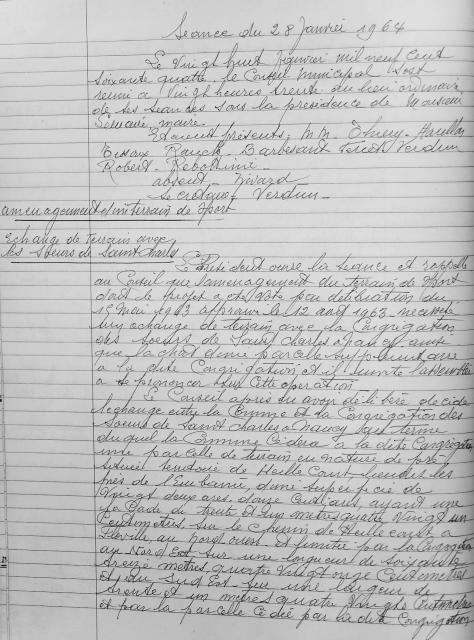 Séance du 28 Janvier 1964
Le Vingt huit Janvier mil neuf cent
soixante quatre, le Conseil Municipal s'est
réuni à Vingt heures trente au lieu ordinaire
de ses séances sous la présidence de Monsieur
maire.
Etaient présents, M.M. Thiery
Rauch Barbesant Verdun
Robert
absent
Secrétaire, Verdun
amenagement d'un terrain de Sport
Echange de Terrain avec
les Soeurs de Saint Charles
Le Président ouvre la séance et rappelle
au Conseil que l'aménagement du terrain de Sport
dont le projet a été voté par délibération du
15 Mai 1963 approuvé le 12 août 1963 nécessite
un echange de terrain avec la Congrégation
des Soeurs de Saint Charles à Nancy ainsi
que l'achat d'une parcelle supplémentaire
à la dite Congrégation et il invite l'assemblée
a se prononcer sur cette opération
Le Conseil après en avoir délibéré décide
l'echange entre la Commune et la Congrégation des
Soeurs de Saint Charles à Nancy aux terme
duquel la Commune cédera à la dite Congrégation
une parcelle de terrain en nature de pré
située territoire de Heillecourt, lieudit les
près de l'Embanie, d'une superficie de
Vingt deux ares douze Centiares, ayant une
façade de trente et un mètres quatre Vingt un
Centimètres sur le Chemin de Heillecourt à
Fléville, au Nord ouest et limitée par la Congrégation
au Nord Est sur une longueur de soixante
treize mètres, quatre Vingt onze Centimètres
et au Sud Est sur une largeur de
trente et un mètres quatre Vingts Centimètres
et par la parcelle cédée par la dite Congrégation